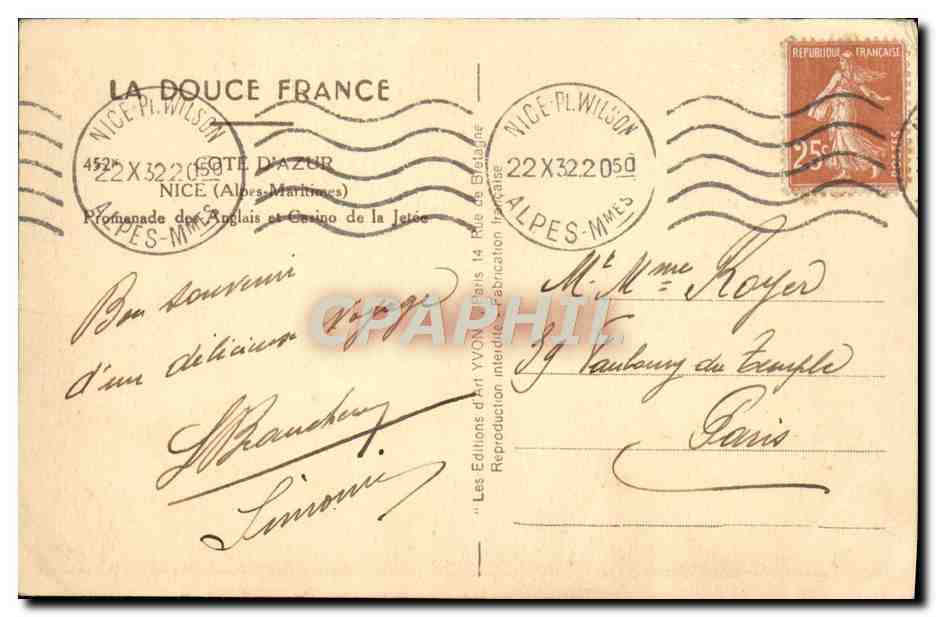 LA DOUCE FRANCE
452 COTE D'AZUR
NICE (Alpes-Maritimes)
Promenade des Anglais et Casino de la Jetée
NICE-PL.WILSON
22 X 32 20 50
ALPES-MMES
NICE-PL.WILSON
22 X 32 20 50
ALPES-MMES
REPUBLIQUE FRANÇAISE
25c
POSTES
Bon souvenir
d'un délicieux voyage
Simone
"Les Editions d'Art YVON Paris 14 Rue de Bretagne
Reproduction interdite. Fabrication française
Mr. Mme Royer
39 Faubourg du Temple
Paris
CPAPHIL